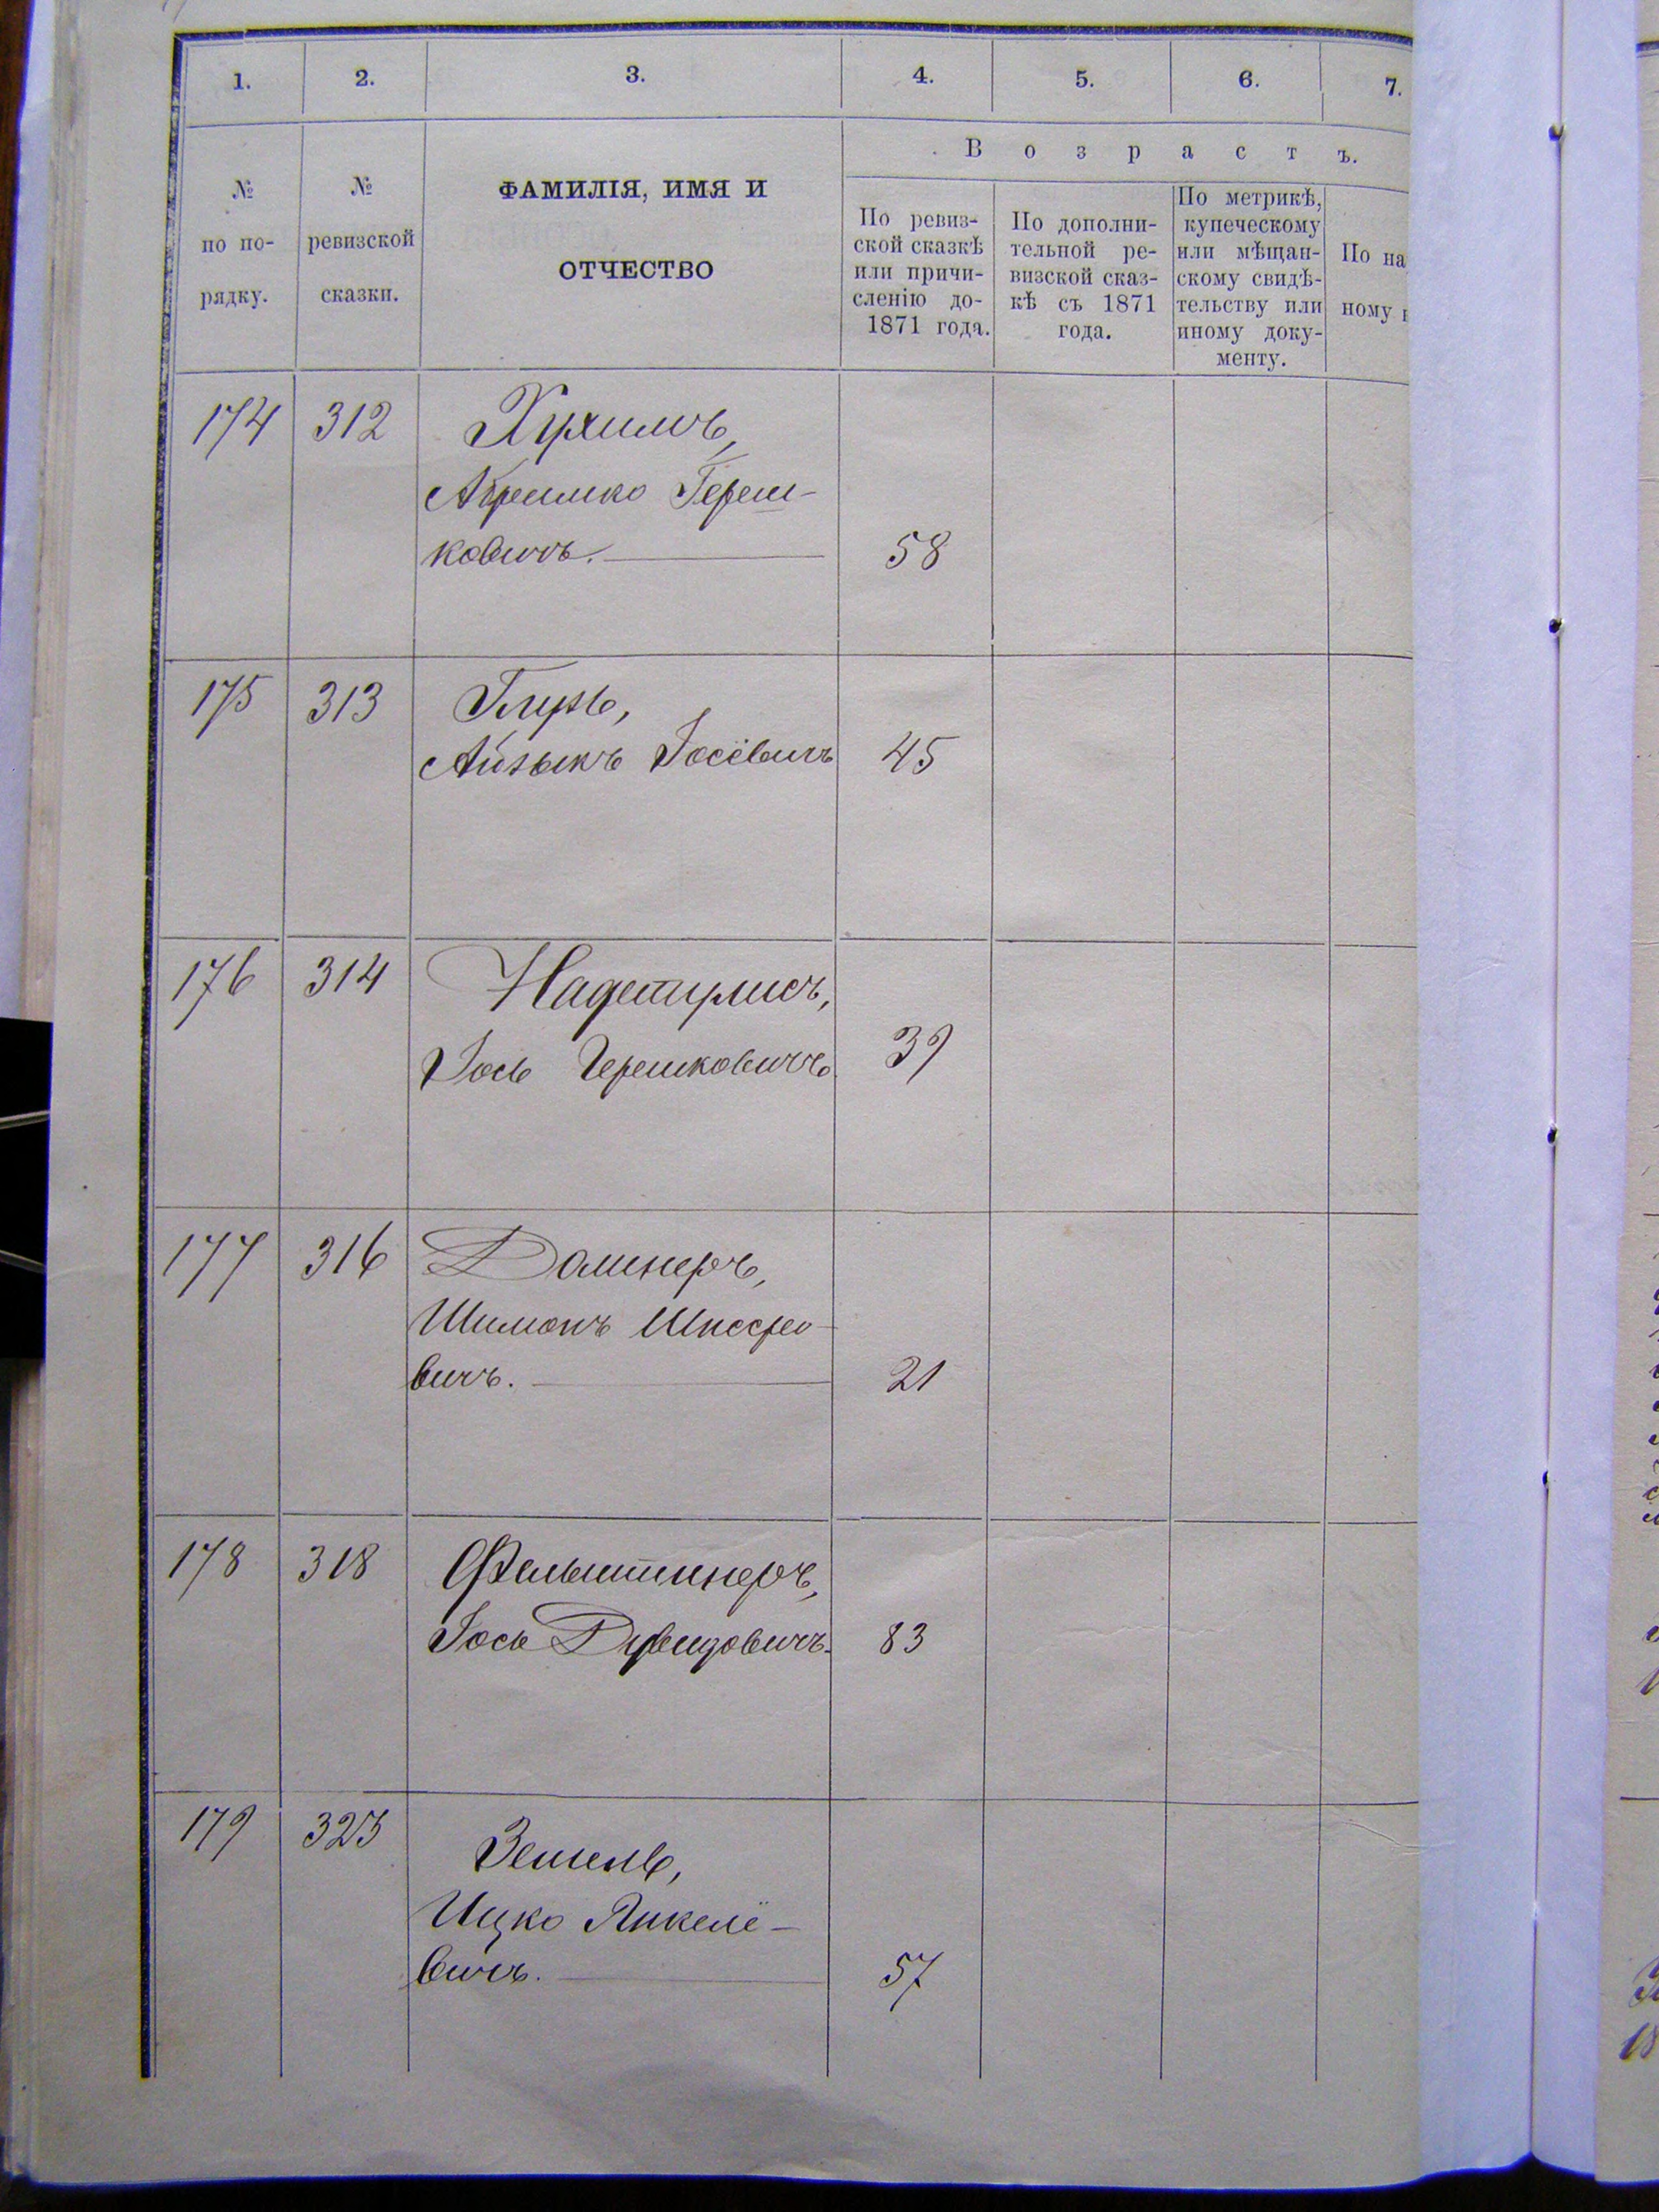 1. 2. 3. 4. 5. 6. 7.
В о з р а с т ъ.
№ по по-рядку.
№ ревизской сказки.
ФАМИЛІЯ, ИМЯ И
ОТЧЕСТВО
По ревиз-
ской сказкѣ
или причи-
сленію до-
1871 года.
По дополни-
тельной ре-
визской сказ-
кѣ съ 1871
года.
По метрикѣ,
купеческому
или мѣщан-
скому свидѣ-
тельству или
иному доку-
менту.
По на
ному
174 312
Абрешко Гереш-
ковичъ. 58
175 313 Глузь,
Айзыкъ Іосёвичъ 45
176 314
Іось Герешковичъ 39
177 316 Долинеръ,
Шимонъ
вичъ. 21
178 318 Фельштинеръ,
Іось Дувидовичъ. 83
179 323 Зейгель,
Ицко Янкелё-
вичъ. 57